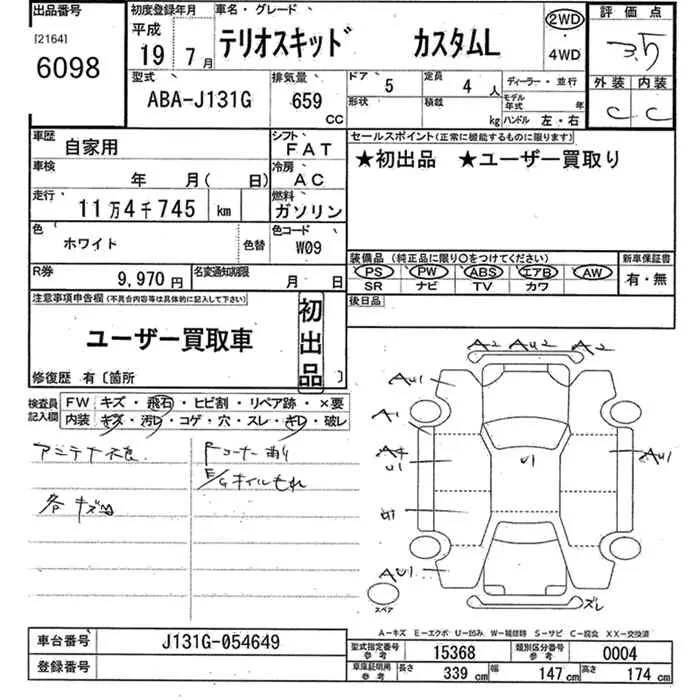 出品番号
[2164]
6098
初度登録年月
平成 19 7月
車名・グレード
テリオスキッド カスタムL
2WD
・
4WD
評価点
3.5
外装 内装
C C
型式
ABA-J131G
排気量
659 CC
ドア 5
定員 4 人
形状
積載 kg
ディーラー・並行
モデル年式 年
ハンドル 左・右
車歴
自家用
シフト
FAT
車検
年 月( 日)
冷房
AC
走行
11万4千745 km
燃料
ガソリン
色
ホワイト
色替
色コード
W09
R券
9,970円
名変通知期限
月 日
セールスポイント(正常に機能するものに限ります)
★初出品 ★ユーザー買取り
装備品(純正品に限り〇をつけてください)
PS PW ABS エアB AW
SR ナビ TV カワ
新車保証書
有・無
後日品
注意事項申告欄(不具合内容等は具体的に記入して下さい)
ユーザー買取車
初出品
修復歴 有〔箇所 〕
検査員記入欄
FW キズ・飛石・ヒビ割・リペア跡・×要
内装 キズ・汚レ・コゲ・穴・スレ・キレ・破レ
アンテナ欠品
各キズ凹
Fコーナー有り
E/Gオイルもれ
A2 AU2 A2
AU1
A1
A4
U1
U1
AU1
AU1
ズレ
スペア
A-キズ E-エクボ U-凹み W-補修跡 S-サビ C-腐食 XX-交換済
車台番号
J131G-054649
登録番号
型式指定番号
参考
15368
類別区分番号
参考
0004
車庫証明用
参考
長さ 339 cm 幅 147 cm 高さ 174 cm